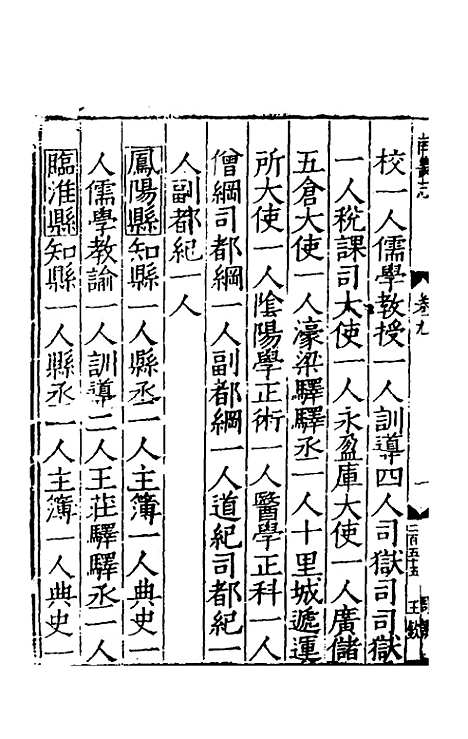 校一人儒學教授一人訓導四人司獄司司獄
一人稅課司大使一人永盈庫大使一人廣儲
五倉大使一人濠梁驛驛丞一人十里城遞運
所大使一人陰陽學正術一人醫學正科一人
僧綱司都綱一人副都綱一人道紀司都紀一
人副都紀一人
鳳陽縣知縣一人縣丞一人主簿一人典史一
人儒學教諭一人訓導二人王莊驛驛丞一人
臨淮縣知縣一人縣丞一人主簿一人典史一
卷九
二百五十五